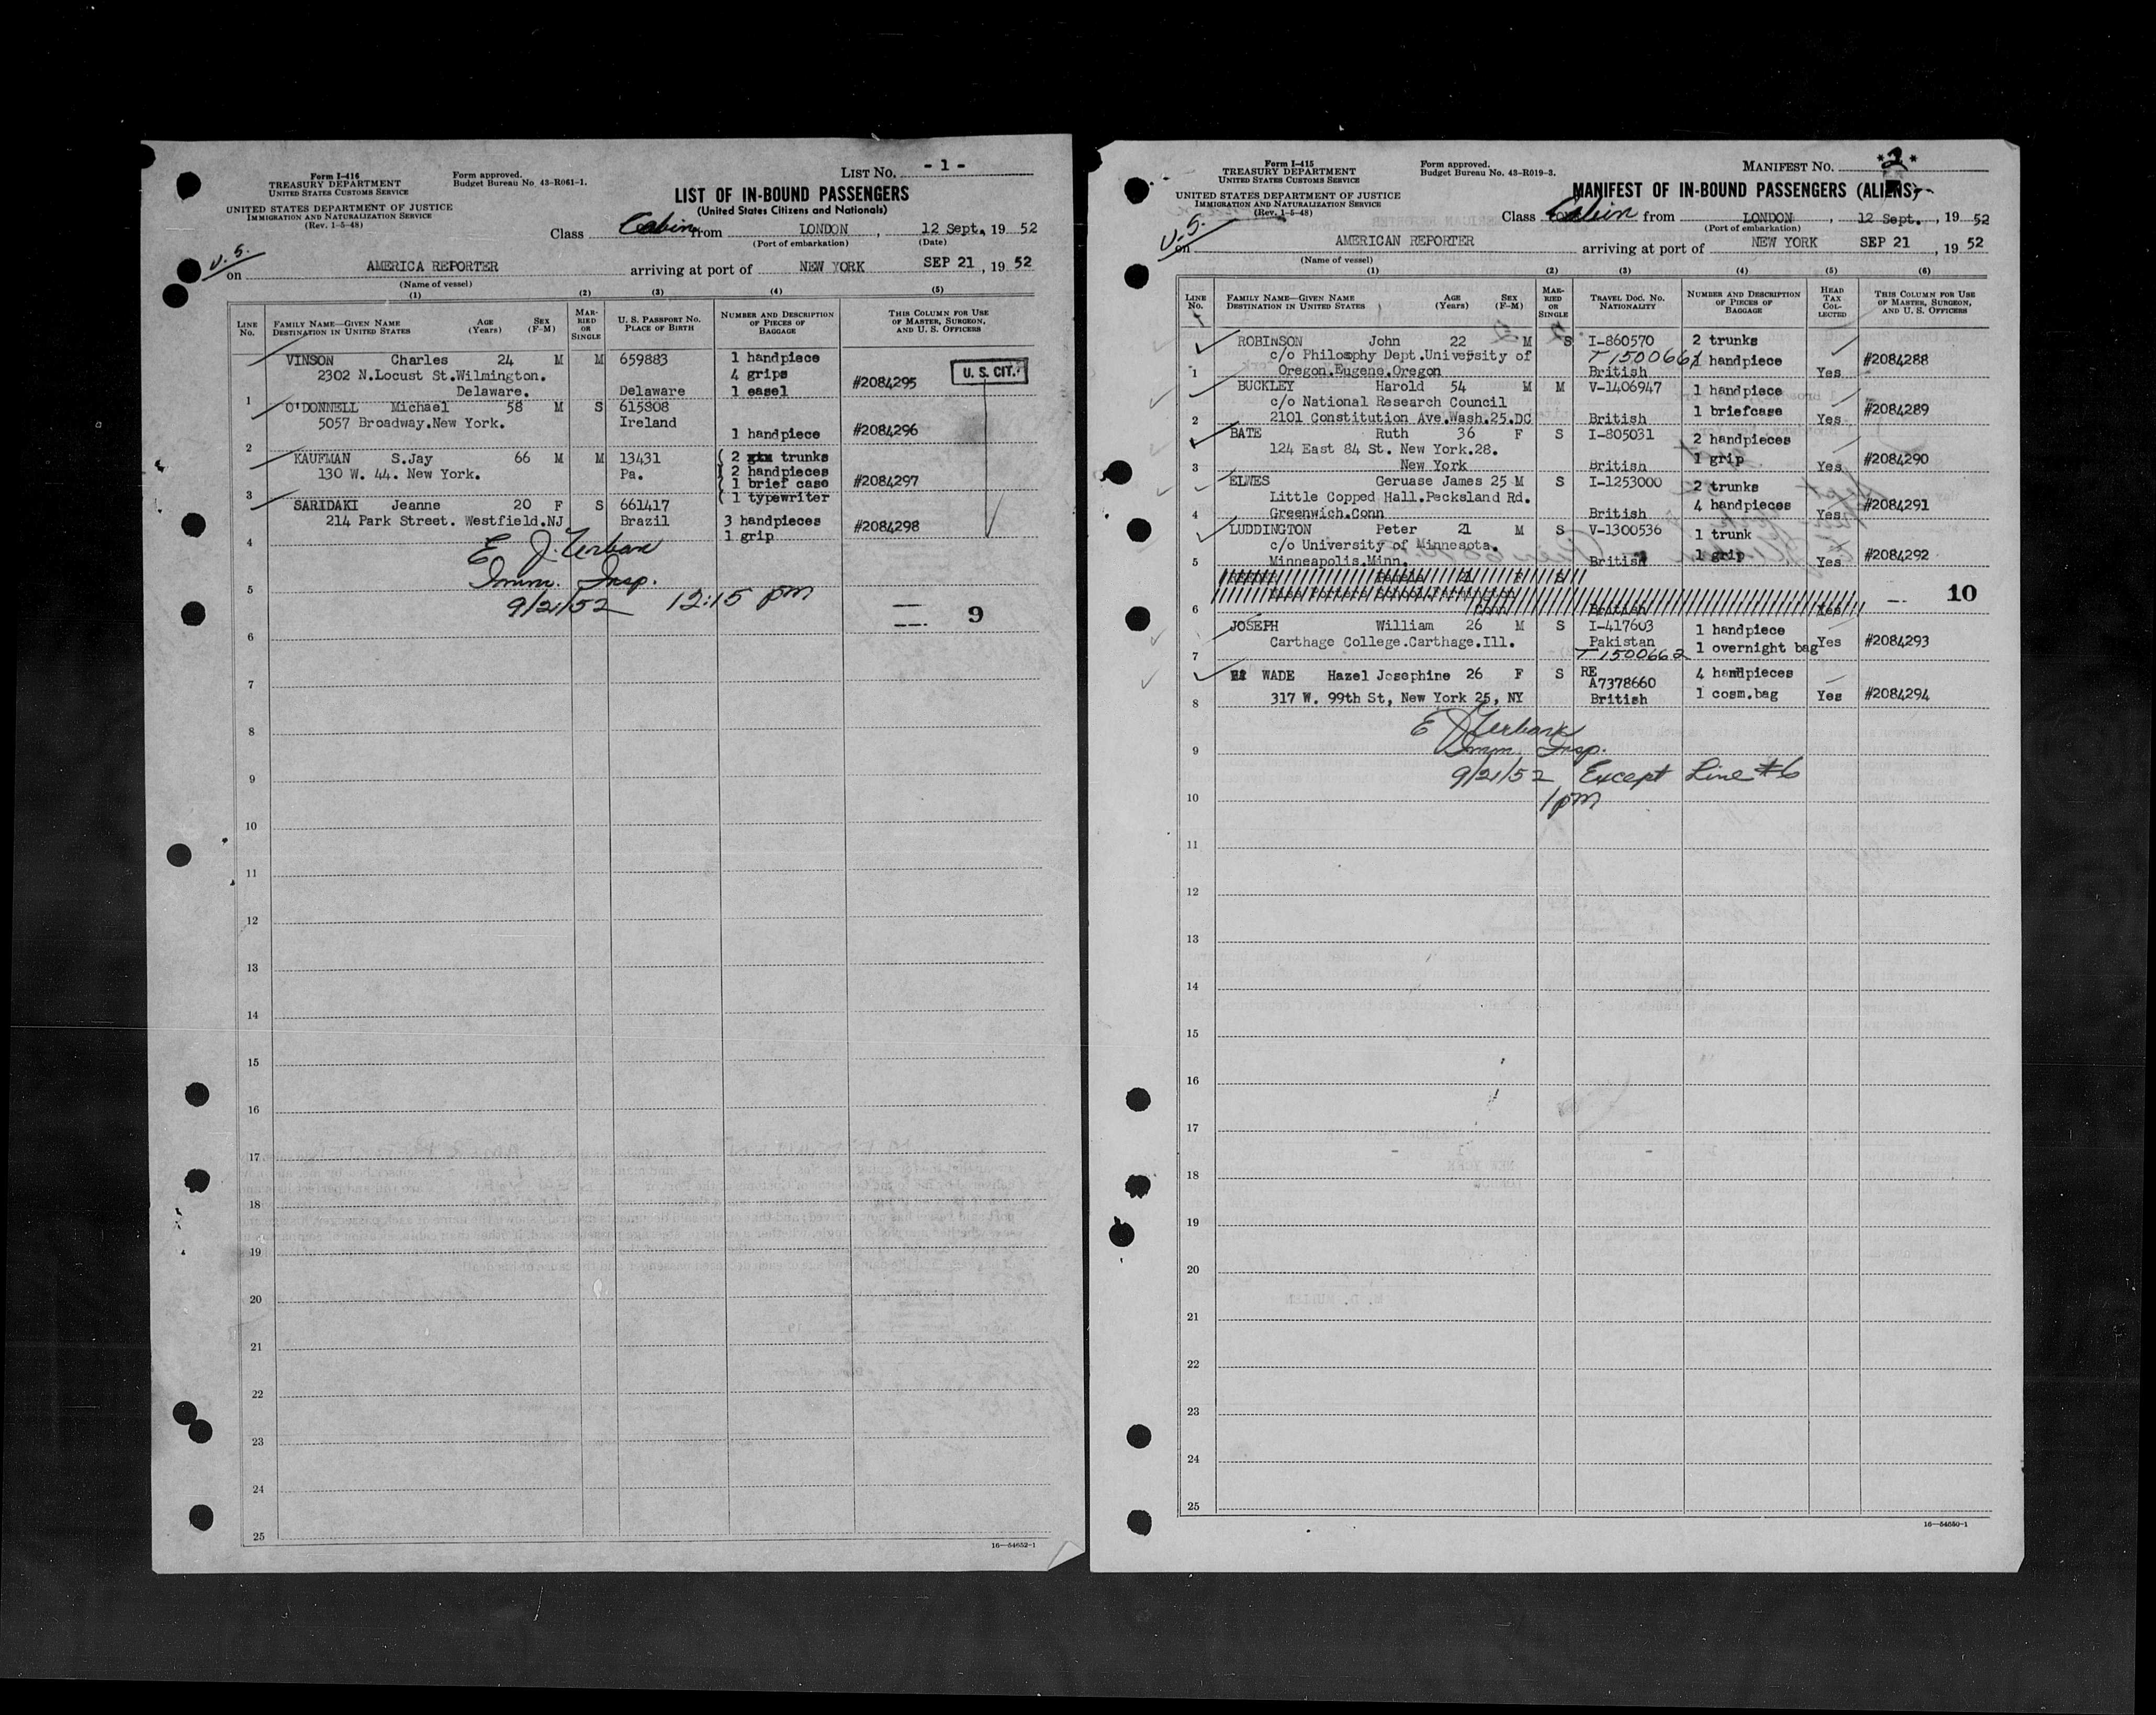 Form I-416
TREASURY DEPARTMENT
UNITED STATES CUSTOMS SERVICE
Form approved.
Budget Bureau No. 43-R061-1.
LIST No. - 1 -
UNITED STATES DEPARTMENT OF JUSTICE
IMMIGRATION AND NATURALIZATION SERVICE
(Rev. 1-5-48)
LIST OF IN-BOUND PASSENGERS
(United States Citizens and Nationals)
Class Cabin from LONDON, 12 Sept., 19 52
(Port of embarkation) (Date)
U.S.
on AMERICA REPORTER arriving at port of NEW YORK SEP 21, 19 52
(Name of vessel)
(1) (2) (3) (4) (5)
LINE No.
FAMILY NAME—GIVEN NAME
DESTINATION IN UNITED STATES
AGE (Years)
SEX (F-M)
MARRIED OR SINGLE
U. S. PASSPORT NO.
PLACE OF BIRTH
NUMBER AND DESCRIPTION OF PIECES OF BAGGAGE
THIS COLUMN FOR USE OF MASTER, SURGEON, AND U. S. OFFICERS
VINSON Charles 24 M M 659883 1 handpiece
2302 N.Locust St.Wilmington. 4 grips #2084295 U. S. CIT.
1 Delaware. Delaware 1 easel
O'DONNELL Michael 58 M S 615808
5057 Broadway.New York. Ireland #2084296
2 1 handpiece
KAUFMAN S.Jay 66 M M 13431 ( 2 trunks
130 W. 44. New York. Pa. ( 2 handpieces
( 1 brief case #2084297
3 ( 1 typewriter
SARIDAKI Jeanne 20 F S 661417
214 Park Street. Westfield.NJ Brazil 3 handpieces #2084298
4 1 grip
Imm. Insp.
5
9/21/52 12:15 pm
9
6
7
8
9
10
11
12
13
14
15
16
17
18
19
20
21
22
23
24
25
16—54652-1
Form I-415
TREASURY DEPARTMENT
UNITED STATES CUSTOMS SERVICE
Form approved.
Budget Bureau No. 43-R019-3.
MANIFEST No. *2*
UNITED STATES DEPARTMENT OF JUSTICE
IMMIGRATION AND NATURALIZATION SERVICE
(Rev. 1-5-48)
MANIFEST OF IN-BOUND PASSENGERS (ALIENS)
Class Cabin from LONDON, 12 Sept., 19 52
(Port of embarkation)
U.S.
on AMERICAN REPORTER arriving at port of NEW YORK SEP 21, 19 52
(Name of vessel)
(1) (2) (3) (4) (5) (6)
LINE No.
FAMILY NAME—GIVEN NAME
DESTINATION IN UNITED STATES
AGE (Years)
SEX (F-M)
MARRIED OR SINGLE
TRAVEL DOC. NO.
NATIONALITY
NUMBER AND DESCRIPTION OF PIECES OF BAGGAGE
HEAD TAX COLLECTED
THIS COLUMN FOR USE OF MASTER, SURGEON, AND U. S. OFFICERS
ROBINSON John 22 M S I-860570 2 trunks
c/o Philosophy Dept.University of T1500661 1 handpiece #2084288
1 Oregon.Eugene.Oregon British Yes
BUCKLEY Harold 54 M M V-1406947 1 handpiece
c/o National Research Council 1 briefcase #2084289
2 2101 Constitution Ave.Wash.25.DC British Yes
BATE Ruth 36 F S I-805031 2 handpieces
124 East 84 St. New York.28. 1 grip #2084290
3 New York British Yes
ELWES Geruase James 25 M S I-1253000 2 trunks
Little Copped Hall.Pecksland Rd. 4 handpieces #2084291
4 Greenwich.Conn British Yes
LUDDINGTON Peter 21 M S V-1300536 1 trunk
c/o University of Minnesota. 1 grip #2084292
5 Minneapolis.Minn. British Yes
10
6 British Yes
JOSEPH William 26 M S I-417603 1 handpiece
Carthage College.Carthage.Ill. Pakistan 1 overnight bag Yes #2084293
7 T1500662
WADE Hazel Josephine 26 F S RE 4 handpieces
A7378660
317 W. 99th St, New York 25, NY British 1 cosm.bag Yes #2084294
8
9 Imm. Insp.
9/21/52 Except Line #6
10 1 pm
11
12
13
14
15
16
17
18
19
20
21
22
23
24
25
16—54650-1